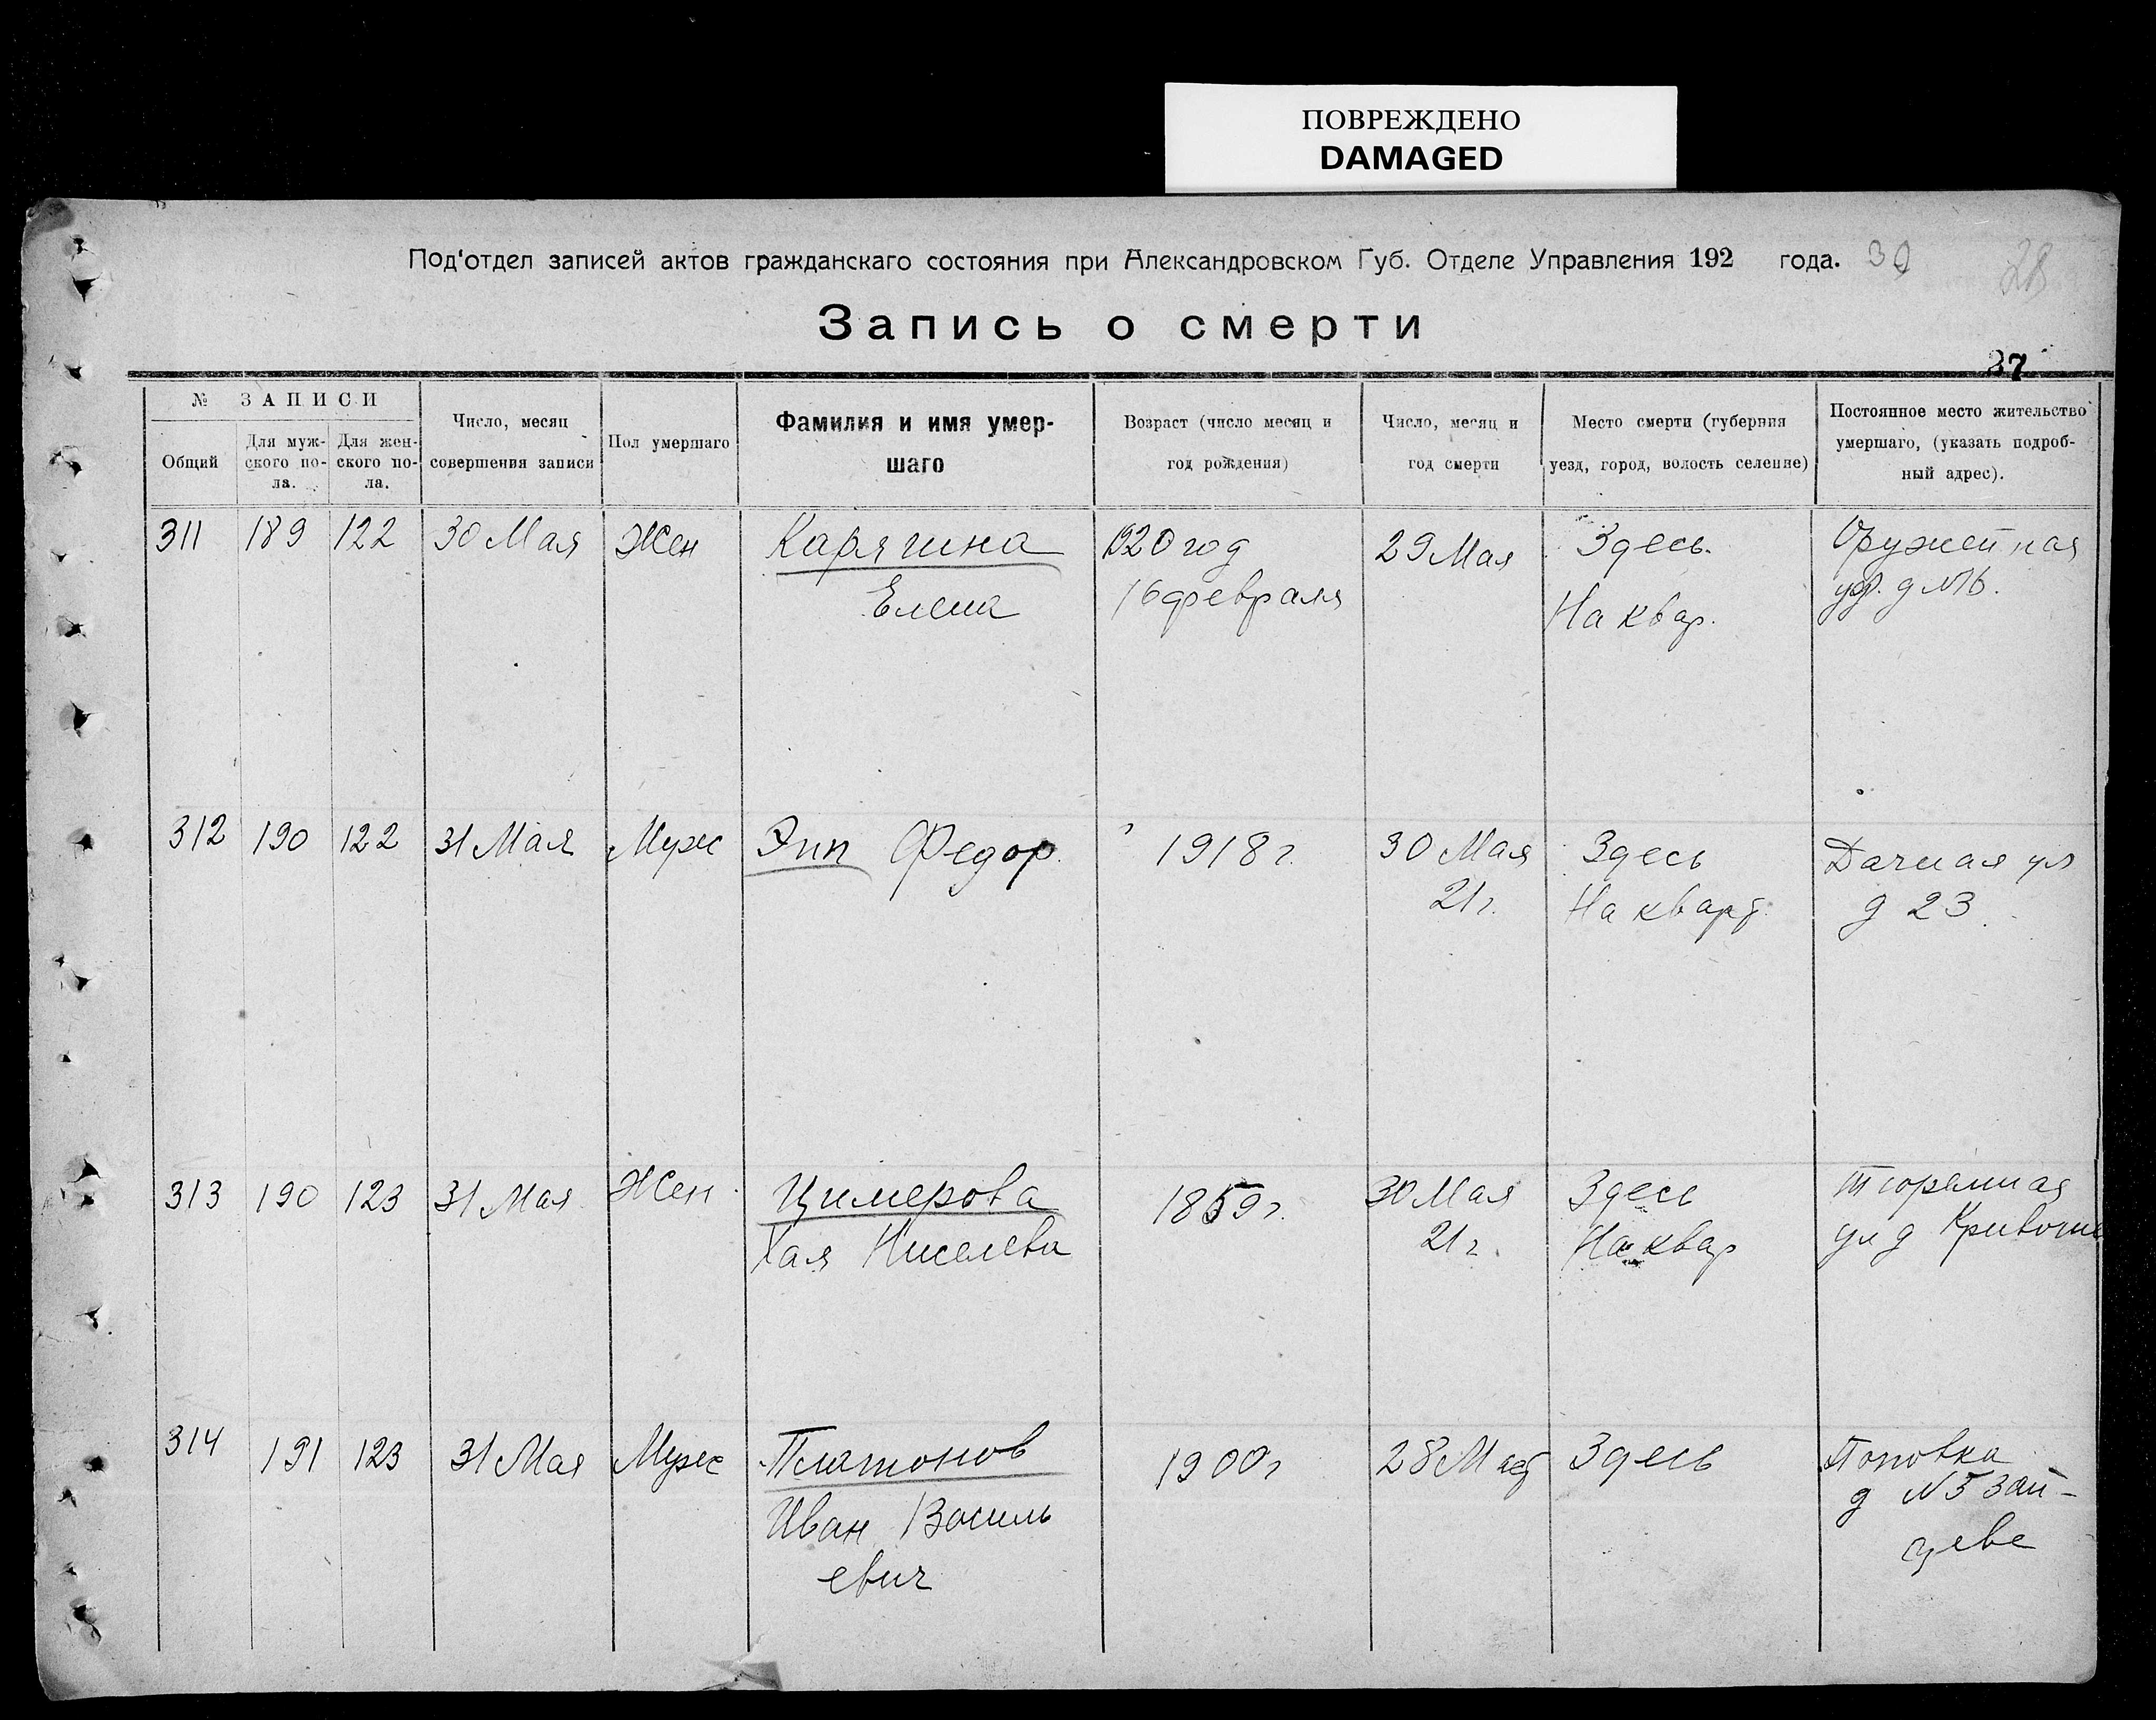 ПОВРЕЖДЕНО
DAMAGED
Под'отдел записей актов гражданскаго состояния при Александровском Губ. Отделе Управления 192 года. 30 28
Запись о смерти
37
№ ЗАПИСИ
Общий
Для муж-
ского по-
ла.
Для жен-
ского по-
ла.
Число, месяц
совершения записи
Пол умершаго
Фамилия и имя умер-
шаго
Возраст (число месяц и
год рождения)
Число, месяц и
год смерти
Место смерти (губерния
уезд, город, волость селение)
Постоянное место жительство
умершаго, (указать подроб-
ный адрес).
311 189 122 30 Мая Жен
Карягина
Елена
1920 год
16 февраля
29 Мая
Здесь.
На квар.
Оружейная
д №6.
312 190 122 31 Мая Муж
Эпп Федор.
1918 г.
30 Мая
21 г.
Здесь
На кварт.
Дачная ул
д 23.
313 190 123 31 Мая Жен.
Цимерова
Хая
1859 г.
30 Мая
21 г.
Здесь
На квар
Тюремная
ул д
314 191 123 31 Мая Муж
Платонов
Иван Василь
евич
1900 г
28 Мая
Здесь
Поповка
д №5 Зай-
цеве